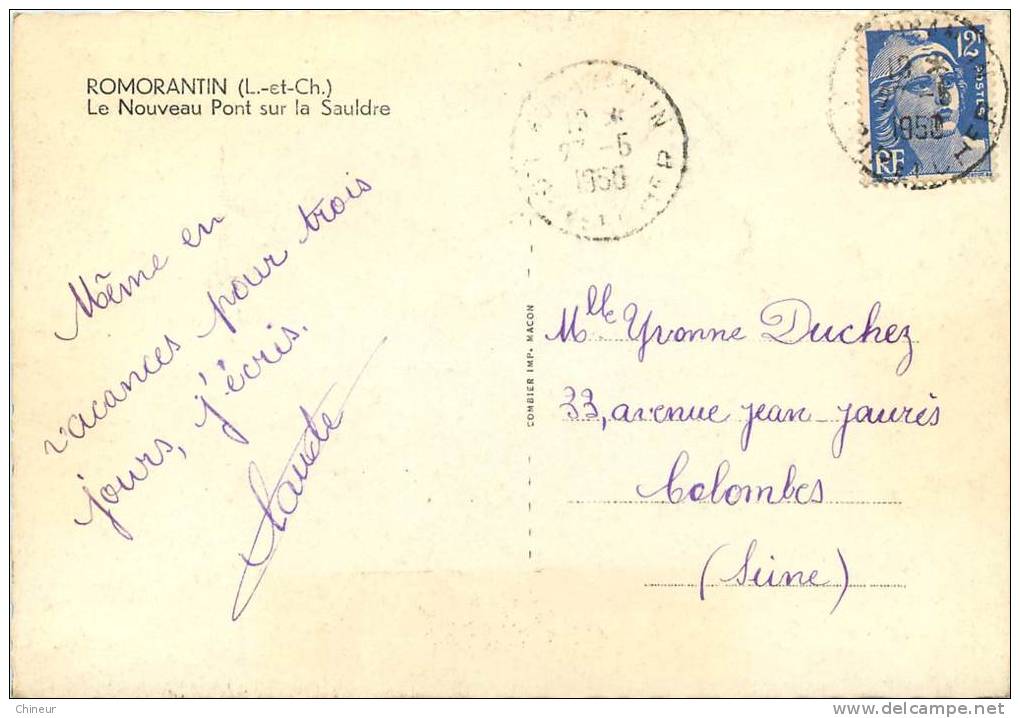 ROMORANTIN (L.-et-Ch.)
Le Nouveau Pont sur la Sauldre
Même en
vacances pour trois
jours, j'écris.
Claude
COMBIER IMP. MACON
ROMORANTIN
1950
LOIR-ET-CHER
12F
POSTES
RF
1950
Mlle Yvonne Duchez
33, avenue jean-jaurès
Colombes
(Seine)
Chineur
www.delcampe.net